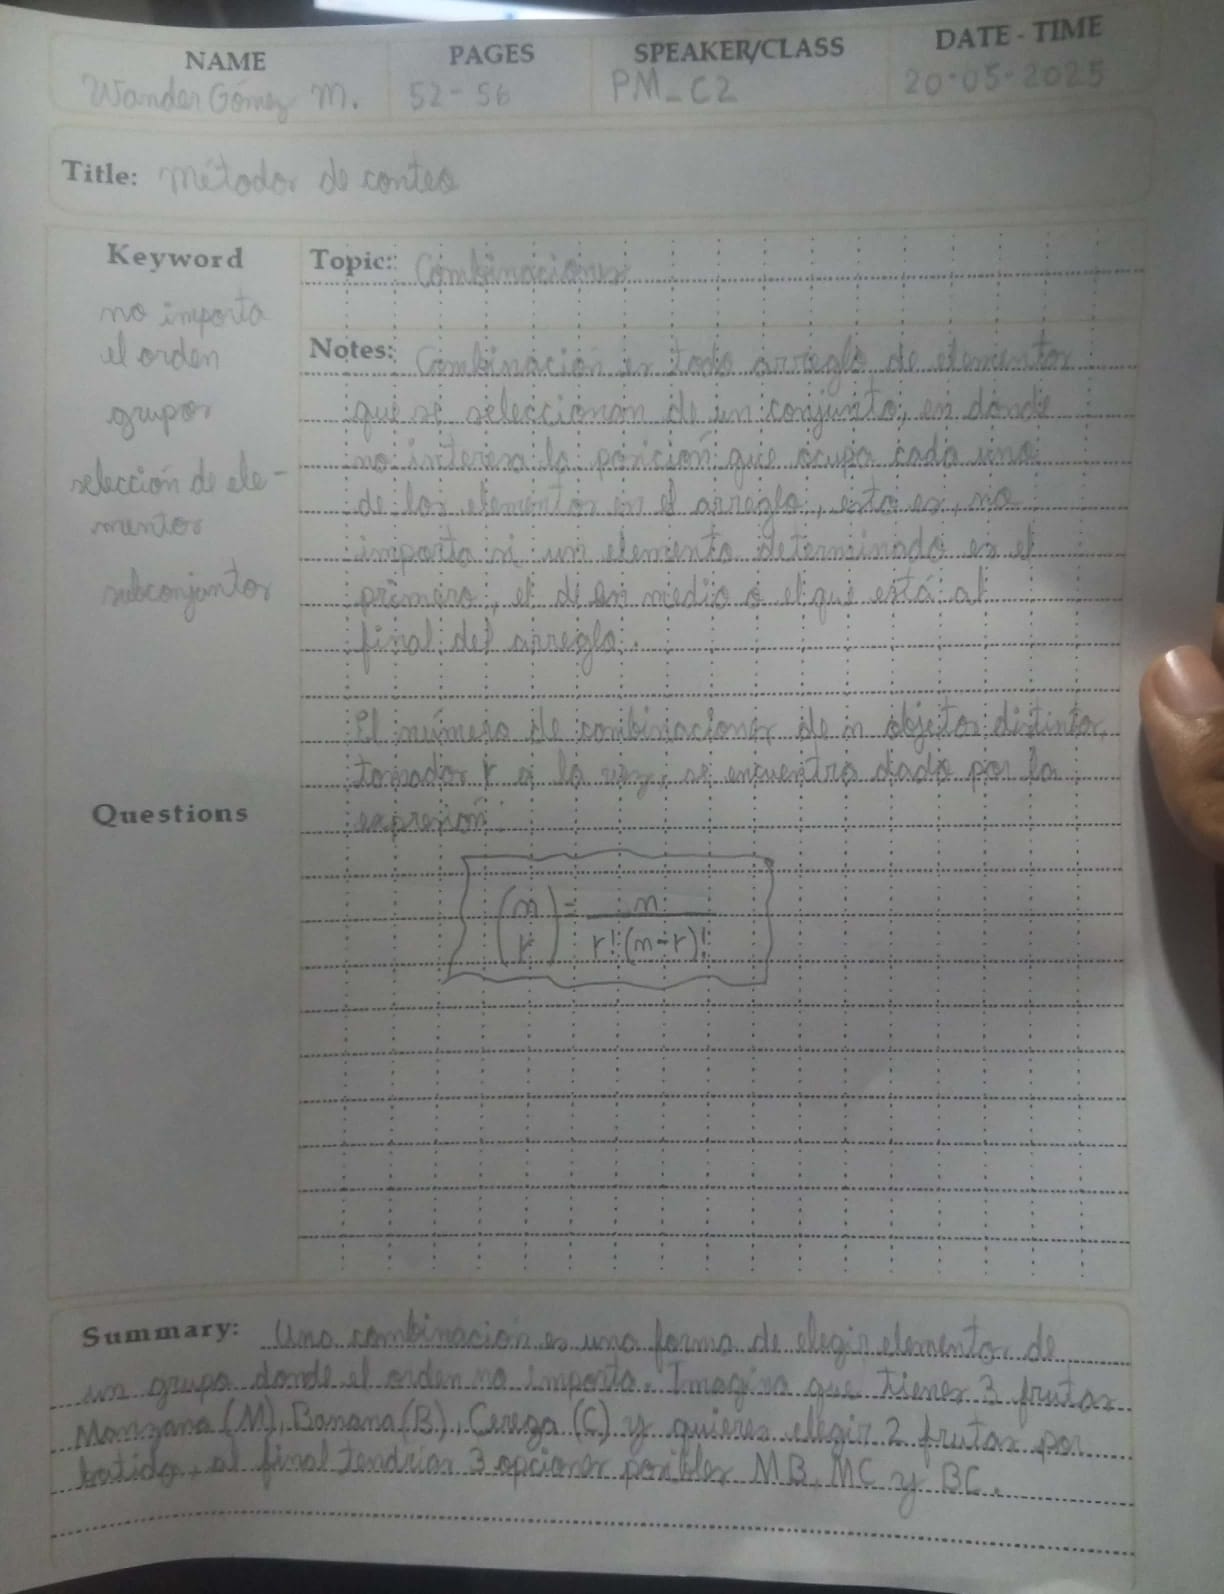 NAME PAGES SPEAKER/CLASS DATE - TIME
Wander Gómez M. 52-56 PM_C2 20-05-2025
Title: Métodos de conteo
Keyword
no importa
el orden
grupos
selección de ele-
mentos
subconjuntos
Questions
Topic: Combinaciones
Notes: Combinación es todo arreglo de elementos
que se seleccionan de un conjunto, en donde
no interesa la posición que ocupa cada uno
de los elementos en el arreglo, esto es, no
importa si un elemento determinado es el
primero, el de en medio o el que está al
final del arreglo.
El número de combinaciones de n objetos distintos,
tomados r a la vez, se encuentra dado por la
expresión:
(n r) = n / r!(n-r)!
Summary: Una combinación es una forma de elegir elementos de
un grupo donde el orden no importa. Imagina que tienes 3 frutas
Manzana (M), Banana (B), Cereza (C) y quieres elegir 2 frutas por
batido, al final tendrías 3 opciones posibles MB, MC y BC.